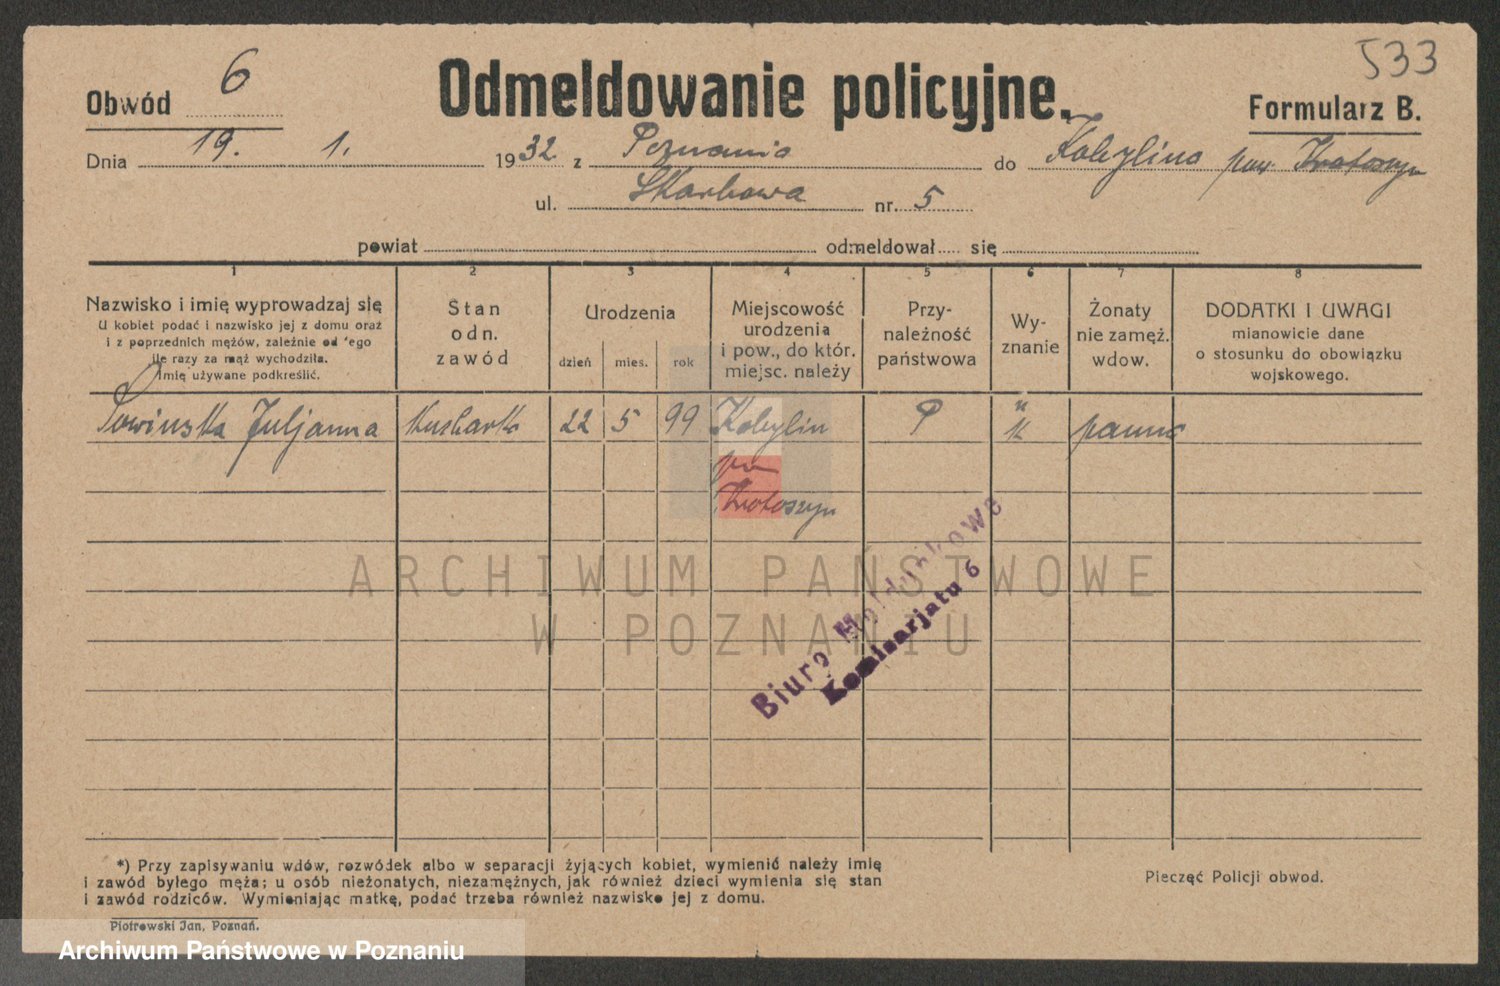 533
Obwód 6
Odmeldowanie policyjne.
Formularz B.
Dnia 19. 1. 1932 z Poznania do Kobylina pow. Krotoszyn
ul. Skarbowa nr. 5
powiat odmeldował się
1 2 3 4 5 6 7 8
Nazwisko i imię wyprowadzaj się
U kobiet podać i nazwisko jej z domu oraz
i z poprzednich mężów, zależnie od ‘ego
ile razy za mąż wychodziła.
Imię używane podkreślić.
Stan
odn.
zawód
Urodzenia
dzień mies. rok
Miejscowość
urodzenia
i pow., do któr.
miejsc. należy
Przy-
należność
państwowa
Wy-
znanie
Żonaty
nie zamęż.
wdow.
DODATKI I UWAGI
mianowicie dane
o stosunku do obowiązku
wojskowego.
Juljanna 22 5 99 Kobylin P panna
Krotoszyn
Biuro Meldunkowe
Komisarjatu 6
ARCHIWUM PAŃSTWOWE
W POZNANIU
*) Przy zapisywaniu wdów, rozwódek albo w separacji żyjących kobiet, wymienić należy imię
i zawód byłego męża; u osób nieżonatych, niezamężnych, jak również dzieci wymienia się stan
i zawód rodziców. Wymieniając matkę, podać trzeba również nazwisko jej z domu.
Pieczęć Policji obwod.
Piotrowski Jan, Poznań.
Archiwum Państwowe w Poznaniu